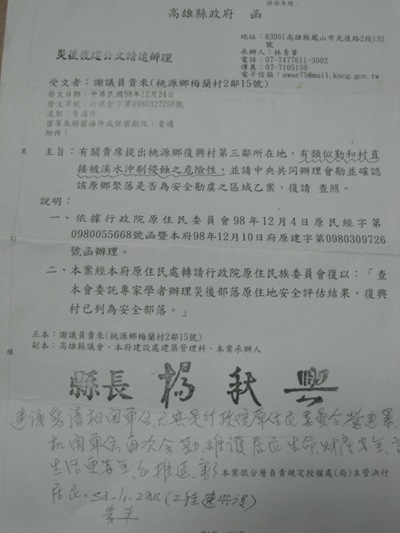 保存年限：
高雄縣政府　函
地址：83001高雄縣鳳山市光復路2段132號
承辦人：林青葦
電話：07-7477611-3002
傳真：07-7105130
電子信箱：awae75@mail.kscg.gov.tw
災後復建公文請速辦理
受文者：謝議員貴來(桃源鄉梅蘭村2鄰15號)
發文日期：中華民國98年12月24日
發文字號：府建管字第0980327298號
速別：普通件
密等及解密條件或保密期限：普通
附件：
主旨：有關貴席提出桃源鄉復興村第三鄰所在地，有類似勤和村直
接被溪水沖刷侵蝕之危險性，並請中央共同辦理會勘並確認
該原鄉聚落是否為安全勘虞之區域乙案，復請 查照。
說明：
一、依據行政院原住民委員會98年12月4日原民經字第
0980055668號函暨本府98年12月10日府原建字第0980309726
號函辦理。
二、本案經本府原住民處轉請行政院原住民族委員會復以：「查
本會委託專家學者辦理災後部落原住地安全評估結果，復興
村已列為安全部落。」
正本：謝議員貴來(桃源鄉梅蘭村2鄰15號)
副本：高雄縣議會、本府建設處建築管理科、本案承辦人
縣長 楊秋興
建議懇請相關單位，行政院原住民委員會營建署
相關單位再次會勘，維護居民生命財產安全，
生活更安全
本案依分層負責規定授權處(局)主管決行
居民